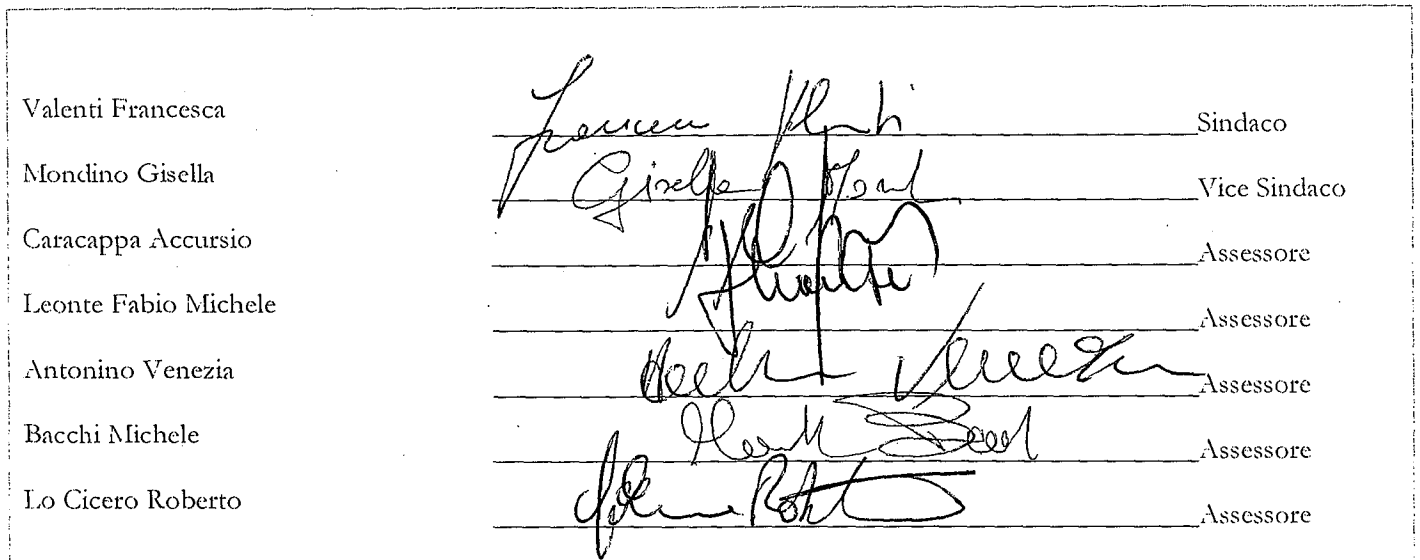 Valenti Francesca Francesca Valenti Sindaco
Mondino Gisella Gisella Mond Vice Sindaco
Caracappa Accursio Assessore
Leonte Fabio Michele Assessore
Antonino Venezia Venezia Assessore
Bacchi Michele Assessore
Lo Cicero Roberto Assessore